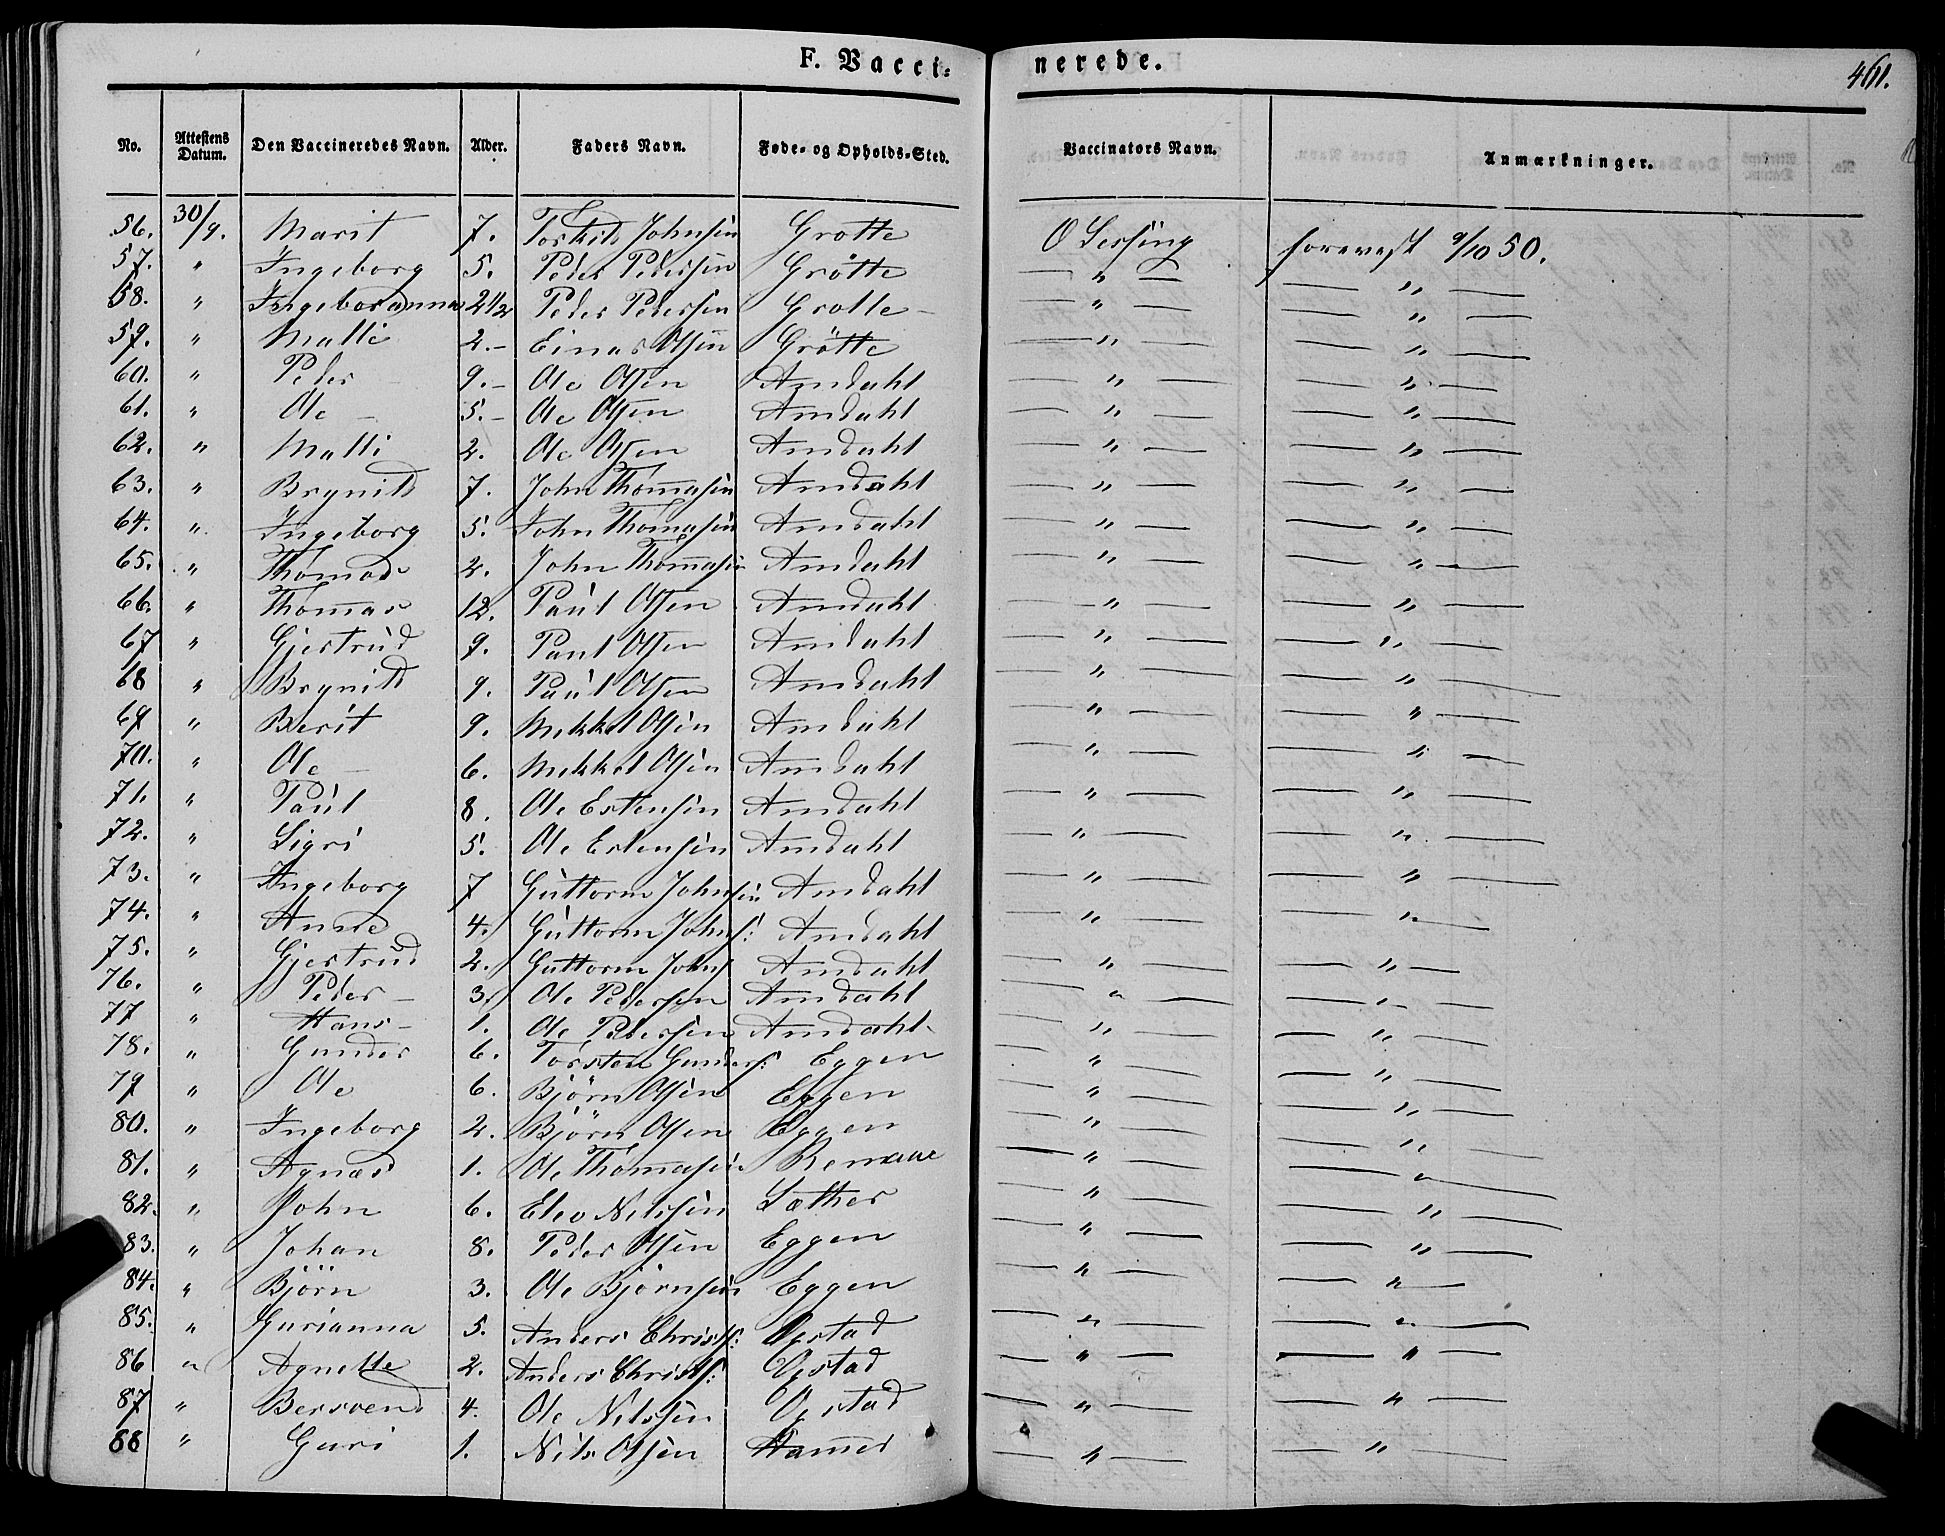 F. Vacci=nerede.
461.
No. Attestens Datum. Den Vaccineredes Navn. Alder. Faders Navn. Føde- og Opholds-Sted. Vaccinators Navn. Anmærkninger.
56. 30/9. Marit 7. Torkild Johnsen Grøtte O Lessing forevist 9/10 50.
57. " Ingeborg 5. Peder Pedersen Grøtte — " — — " —
58. " Ingeboranna 2 1/2 Peder Pedersen Grøtte — " — — " —
59. " Malli 2. Einar Olsen Grötte — " — — " —
60. " Peder 9. Ole Olsen Amdahl — " — — " —
61. " Ole 5. Ole Olsen Amdahl — " — — " —
62. " Malli 2. Ole Olsen Amdahl — " — — " —
63. " Brynild 7. John Thomasen Amdahl — " — — " —
64. " Ingeborg 5. John Thomasen Amdahl — " — — " —
65. " Thomas 2. John Thomasen Amdahl — " — — " —
66. " Thomas 12. Paul Olsen Amdahl — " — — " —
67 " Gjertrud 9. Paul Olsen Amdahl — " — — " —
68 " Brynild 9. Paul Olsen Amdahl — " — — " —
69 " Berit 9. Mikkel Olsen Amdahl — " — — " —
70. " Ole 6. Mikkel Olsen Amdahl — " — — " —
71. " Paul 8. Ole Estensen Amdahl — " — — " —
72. " Sigri 5. Ole Estensen Amdahl — " — — " —
73. " Ingeborg 7 Guttorm Johnsen Amdahl — " — — " —
74. " Anne 4. Guttorm Johns: Amdahl — " — — " —
75. " Gjertrud 2. Guttorm Johns Amdahl — " — — " —
76. " Peder 3. Ole Pedersen Amdahl — " — — " —
77 " Hans 1. Ole Pedersen Amdahl — " — — " —
78. " Gunder 6. Torsten Gunders: Eggen — " — — " —
79 " Ole 6. Björn Olsen Eggen — " — — " —
80. " Ingeborg 2. Björn Olsen Eggen — " — — " —
81. " Agnæs 1. Ole Thomasen — " — — " —
82. " John 6. Elev Nilssen Sæther — " — — " —
83. " Johan 8. Peder Olsen Eggen — " — — " —
84. " Björn 3. Ole Björnsen Eggen — " — — " —
85. " Gurianna 5. Anders Christs: Opstad — " — — " —
86 " Agnette 2. Anders Christs: Opstad — " — — " —
87 " Bersvend 4. Ole Nilssen Opstad — " — — " —
88 " Guri 1. Nils Olsen Hammer — " — — " —